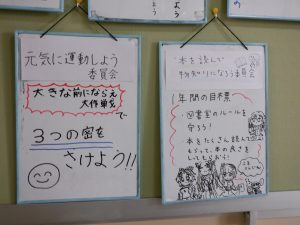 元気に運動しよう
委員会
大きな前にならえ
大作戦で
3つの密を
さけよう!!
本を読んで
物知りになろう委員会
1年間の目標
・図書室のルールを
守ろう!
・本をたくさん読んで
もらって、本の良さを
しってもらおう!